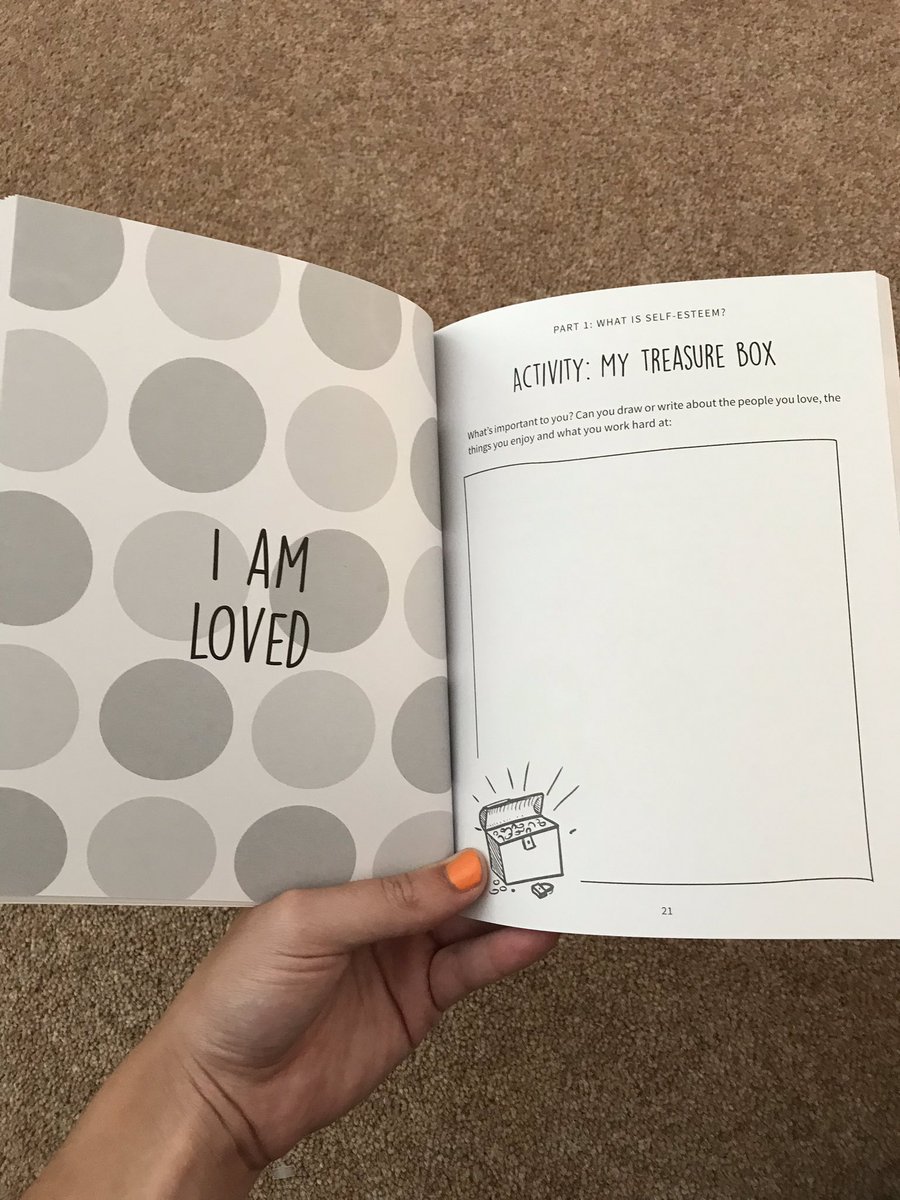 I AM
LOVED
PART 1: WHAT IS SELF-ESTEEM?
ACTIVITY: MY TREASURE BOX
What's important to you? Can you draw or write about the people you love, the
things you enjoy and what you work hard at:
21